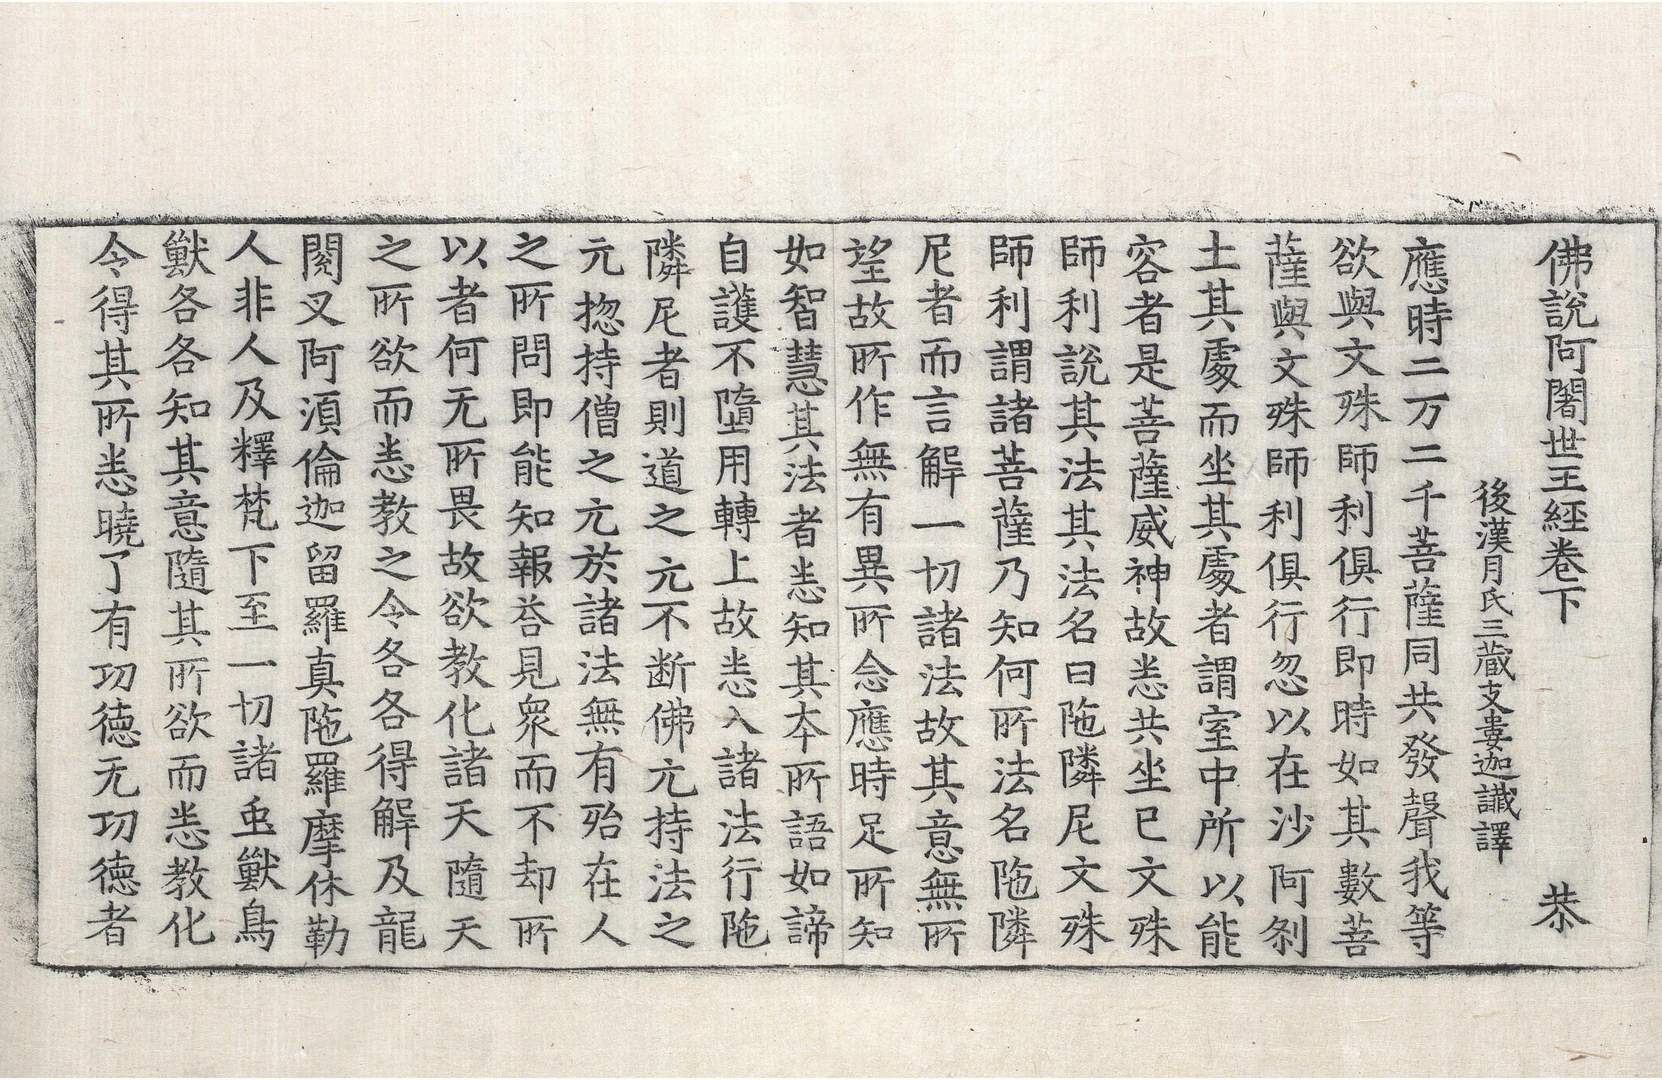 佛說阿闍世王經卷下　恭
後漢月氏三藏支婁迦讖譯
應時二万二千菩薩同共發聲我等
欲與文殊師利俱行即時如其數菩
薩與文殊師利俱行忽以在沙阿剎
土其處而坐其處者謂室中所以能
容者是菩薩威神故悉共坐已文殊
師利說其法其法名曰陁隣尼文殊
師利謂諸菩薩乃知何所法名陁隣
尼者而言解一切諸法故其意無所
望故所作無有異所念應時足所知
如智慧其法者悉知其本所語如諦
自護不墮用轉上故悉入諸法行陁
隣尼者則道之元不断佛元持法之
元惣持僧之元於諸法無有殆在人
之所問即能知報荅見衆而不却所
以者何无所畏故欲教化諸天隨天
之所欲而悉教之令各各得解及龍
閱叉阿湏倫迦留羅真陁羅摩休勒
人非人及釋梵下至一切諸䖝獸鳥
獸各各知其意隨其所欲而悉教化
令得其所悉曉了有功德无功德者